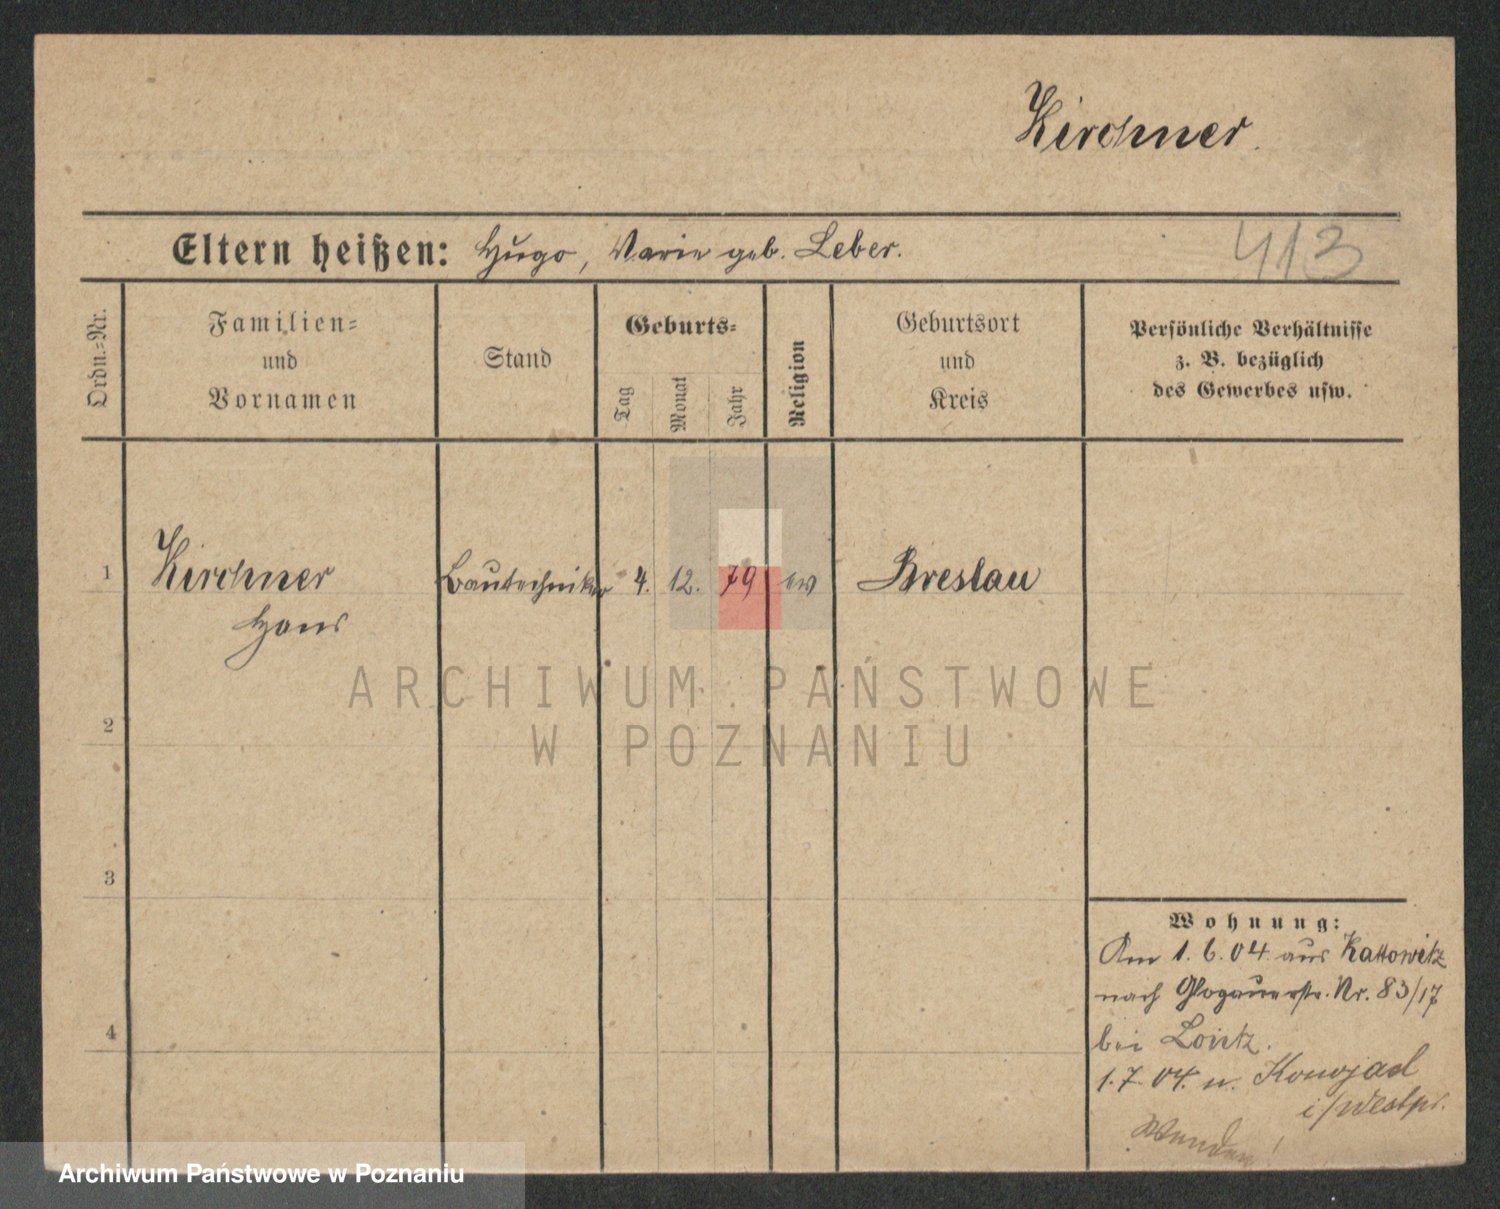 Kirchner.
Eltern heißen: Hugo, Marie geb. Leber.
413
Ordn.=Nr.
Familien=
und
Vornamen
Stand
Geburts=
Tag
Monat
Jahr
Religion
Geburtsort
und
Kreis
Persönliche Verhältnisse
z. B. bezüglich
des Gewerbes usw.
1 Kirchner Bautechniker 4. 12. 79 ev Breslau
Hans
ARCHIWUM PAŃSTWOWE
W POZNANIU
2
3
4
Wohnung:
Am 1. 6. 04. aus Kattowitz
nach Glogauerstr. Nr. 83/17
bei
1. 7. 04. n. Konojad
i/Westpr.
Wenden!
Archiwum Państwowe w Poznaniu